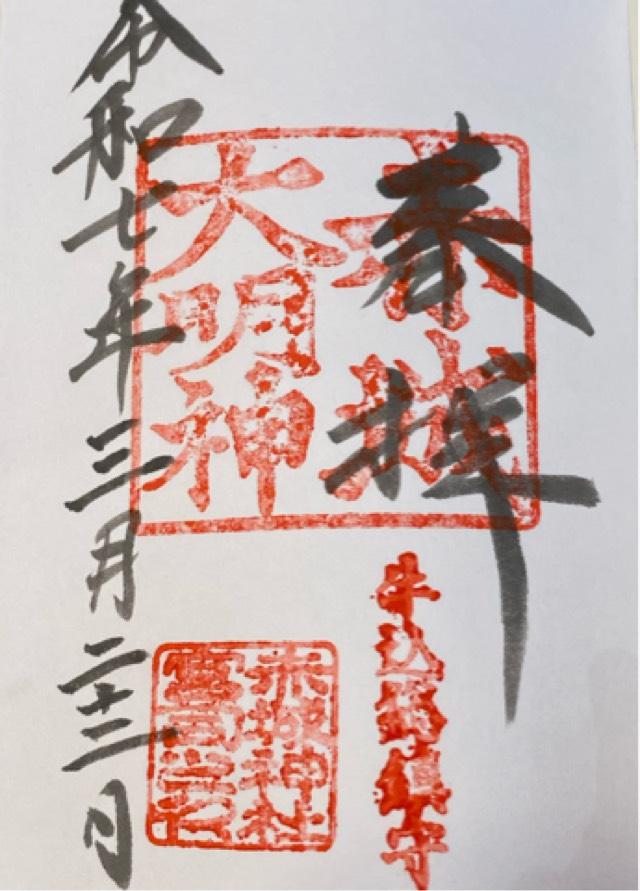 奉拝
赤城
大明神
牛込總鎮守
赤城神社
宮司之印
令和七年三月二十二日